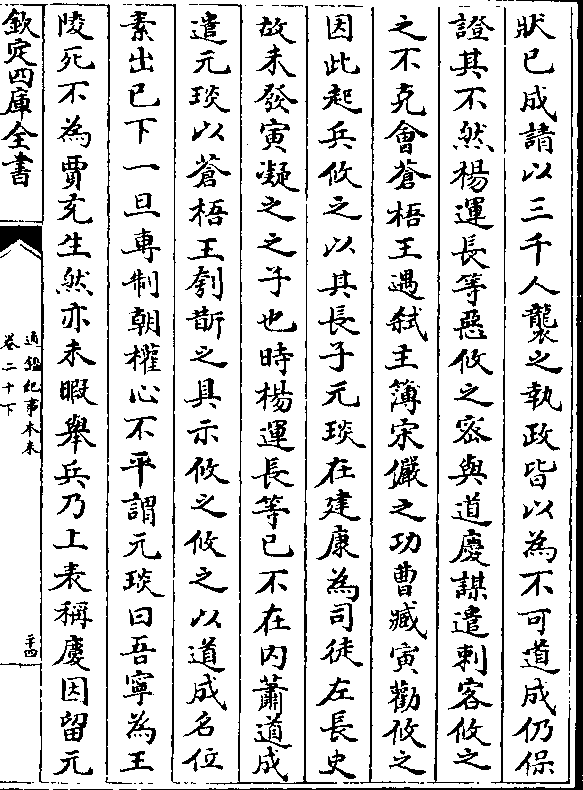 狀已成請以三千人襲之執政皆以為不可道成仍保
證其不然楊運長等惡攸之密與道慶謀遣刺客攸之
之不克會蒼梧王遇弑主簿宗儼之功曹臧寅勸攸之
因此起兵攸之以其長子元琰在建康為司徒左長史
故未發寅凝之之子也時楊運長等已不在內蕭道成
遣元琰以蒼梧王刳斮之具示攸之攸之以道成名位
素出已下一旦専制朝權心不平謂元琰曰吾寧為王
陵死不為賈充生然亦未暇舉兵乃上表稱慶因留元
欽定四庫全書
通鑑紀事本末
卷二十下
二十四